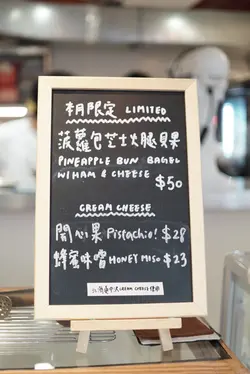 本月限定 LIMITED
菠蘿包芝士火腿貝果
PINEAPPLE BUN BAGEL
W/HAM & CHEESE $50
CREAM CHEESE
開心果 Pistachio! $28
蜂蜜味噌 HONEY MISO $23
CREAM CHEESE